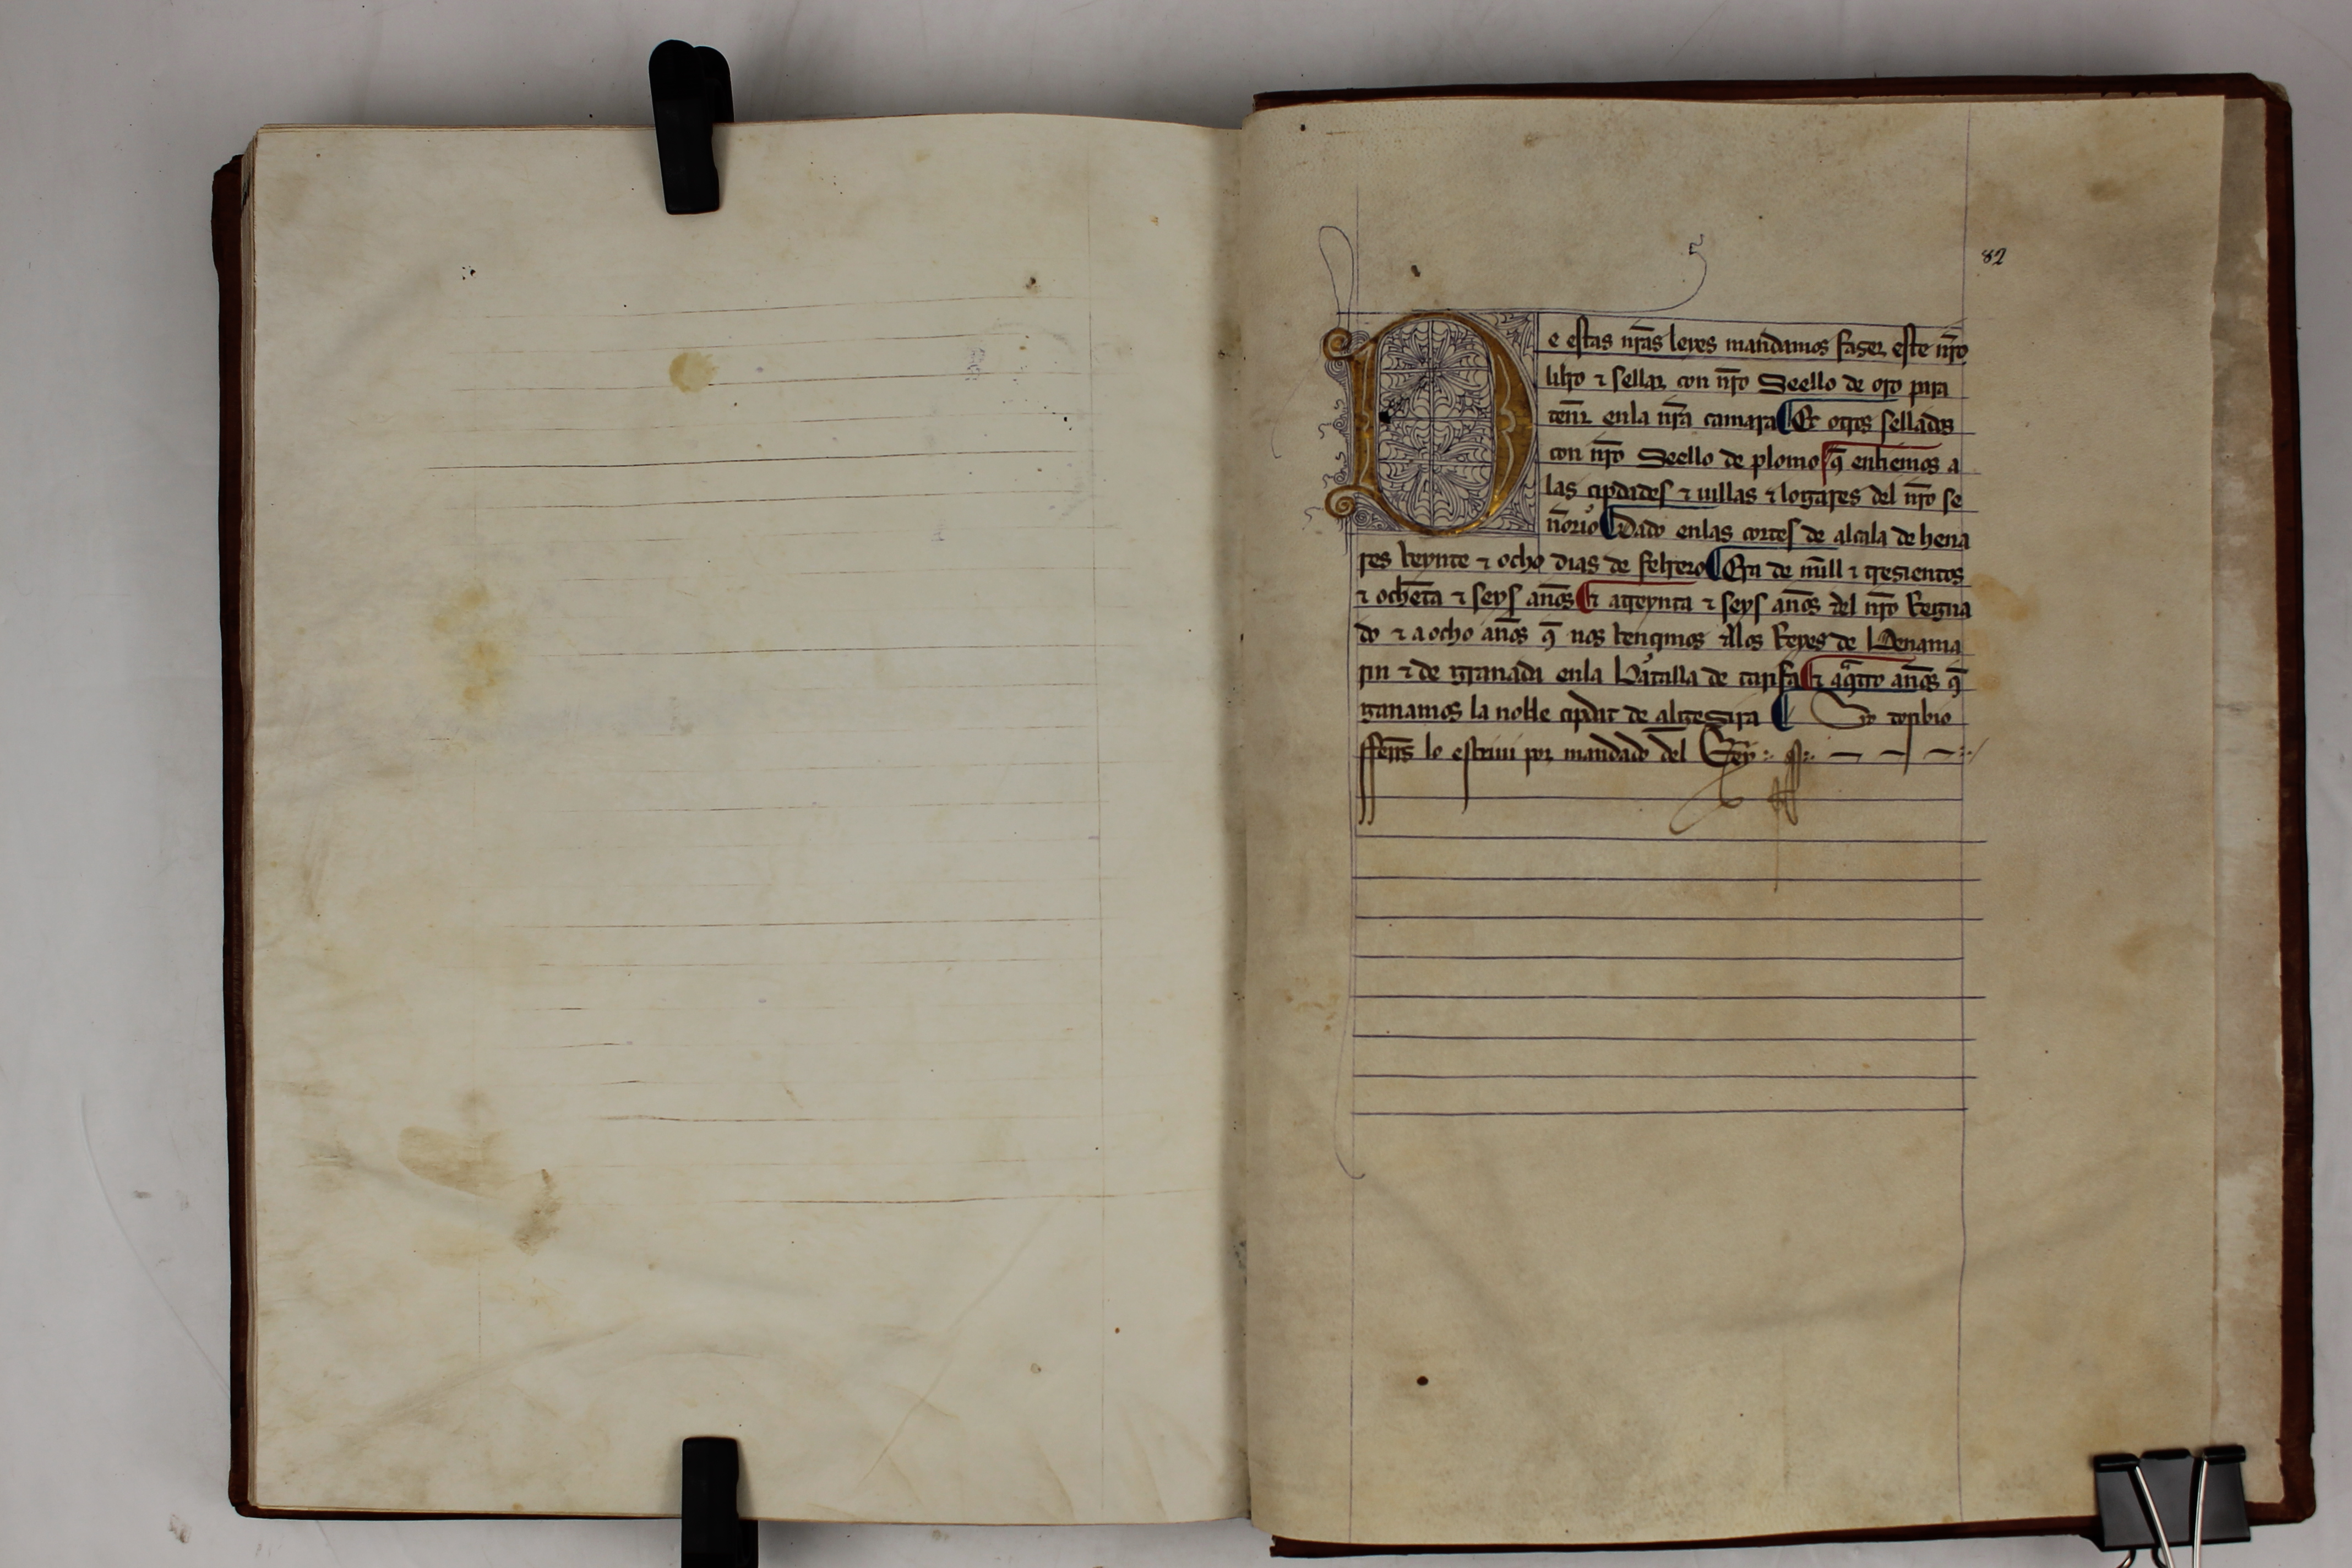 82
De estas nr̃as leyes mandamos faser este nr̃o
libro ⁊ sellar con nr̃o Seello de oro para
tener enla nr̃a camara ¶ Et otros sellados
con nr̃o Seello de plomo q̃ enbiemos a
las çipdades ⁊ uillas ⁊ logares del nr̃o se
ñorio ¶ Dado enlas cortes de alcala de hena
res veynte ⁊ ocho dias de febrero ¶ Era de mill ⁊ tresientos
⁊ ochẽta ⁊ seys años ¶ ⁊ atreynta ⁊ seys años del nr̃o Regna
do ⁊ a ocho años q̃ nos vençimos alos Reyes de Benama
rin ⁊ de granada enla Batalla de tarifa ¶ ⁊ aq̃tro años q̃
ganamos la noble çipdat de algesira ¶ Yo toribio
fferrñs lo escriui por mandado del Rey